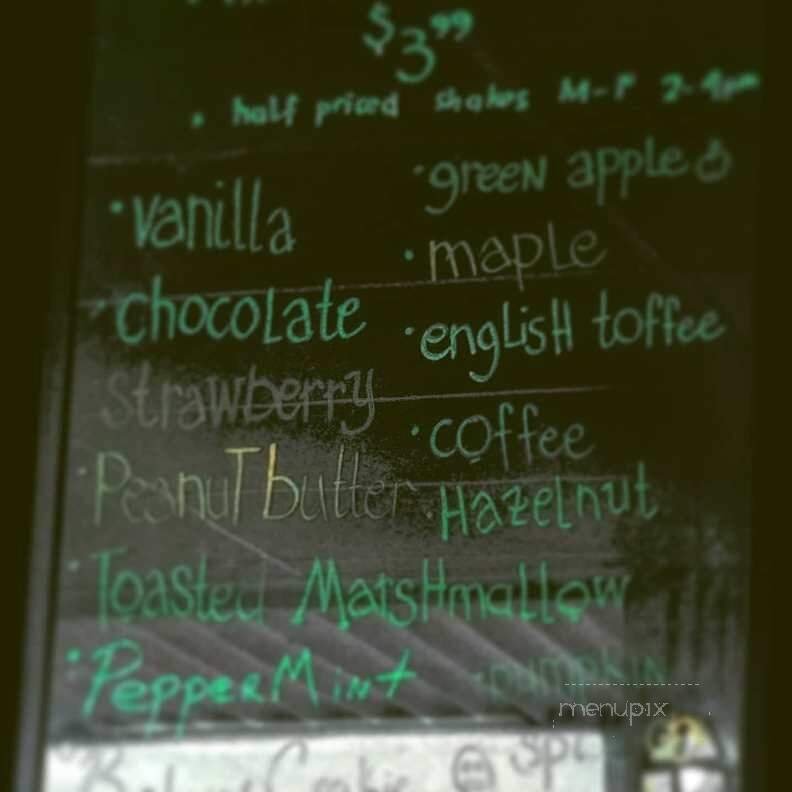 $3.99
• half priced shakes M-F 2-4pm
• vanilla
• green apple
• maple
chocolate
• english toffee
strawberry
• coffee
• Peanut butter
• Hazelnut
• Toasted Marshmallow
• PepperMint
• pumpkin
menupix
Cookie